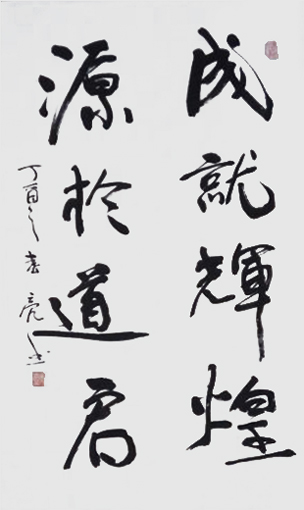 成就輝煌
源於道君
丁酉之春亮书